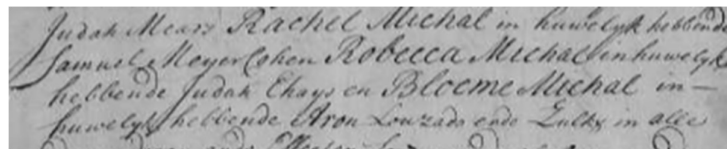 Judah Mears Rachel Michal in huwelyk hebbende
Samuel Meyer Cohen Rebecca Michal in huwelyk
hebbende Judah Hays en Bloeme Michal in —
huwelyk hebbende Aron Louzada ende Zulks in alle